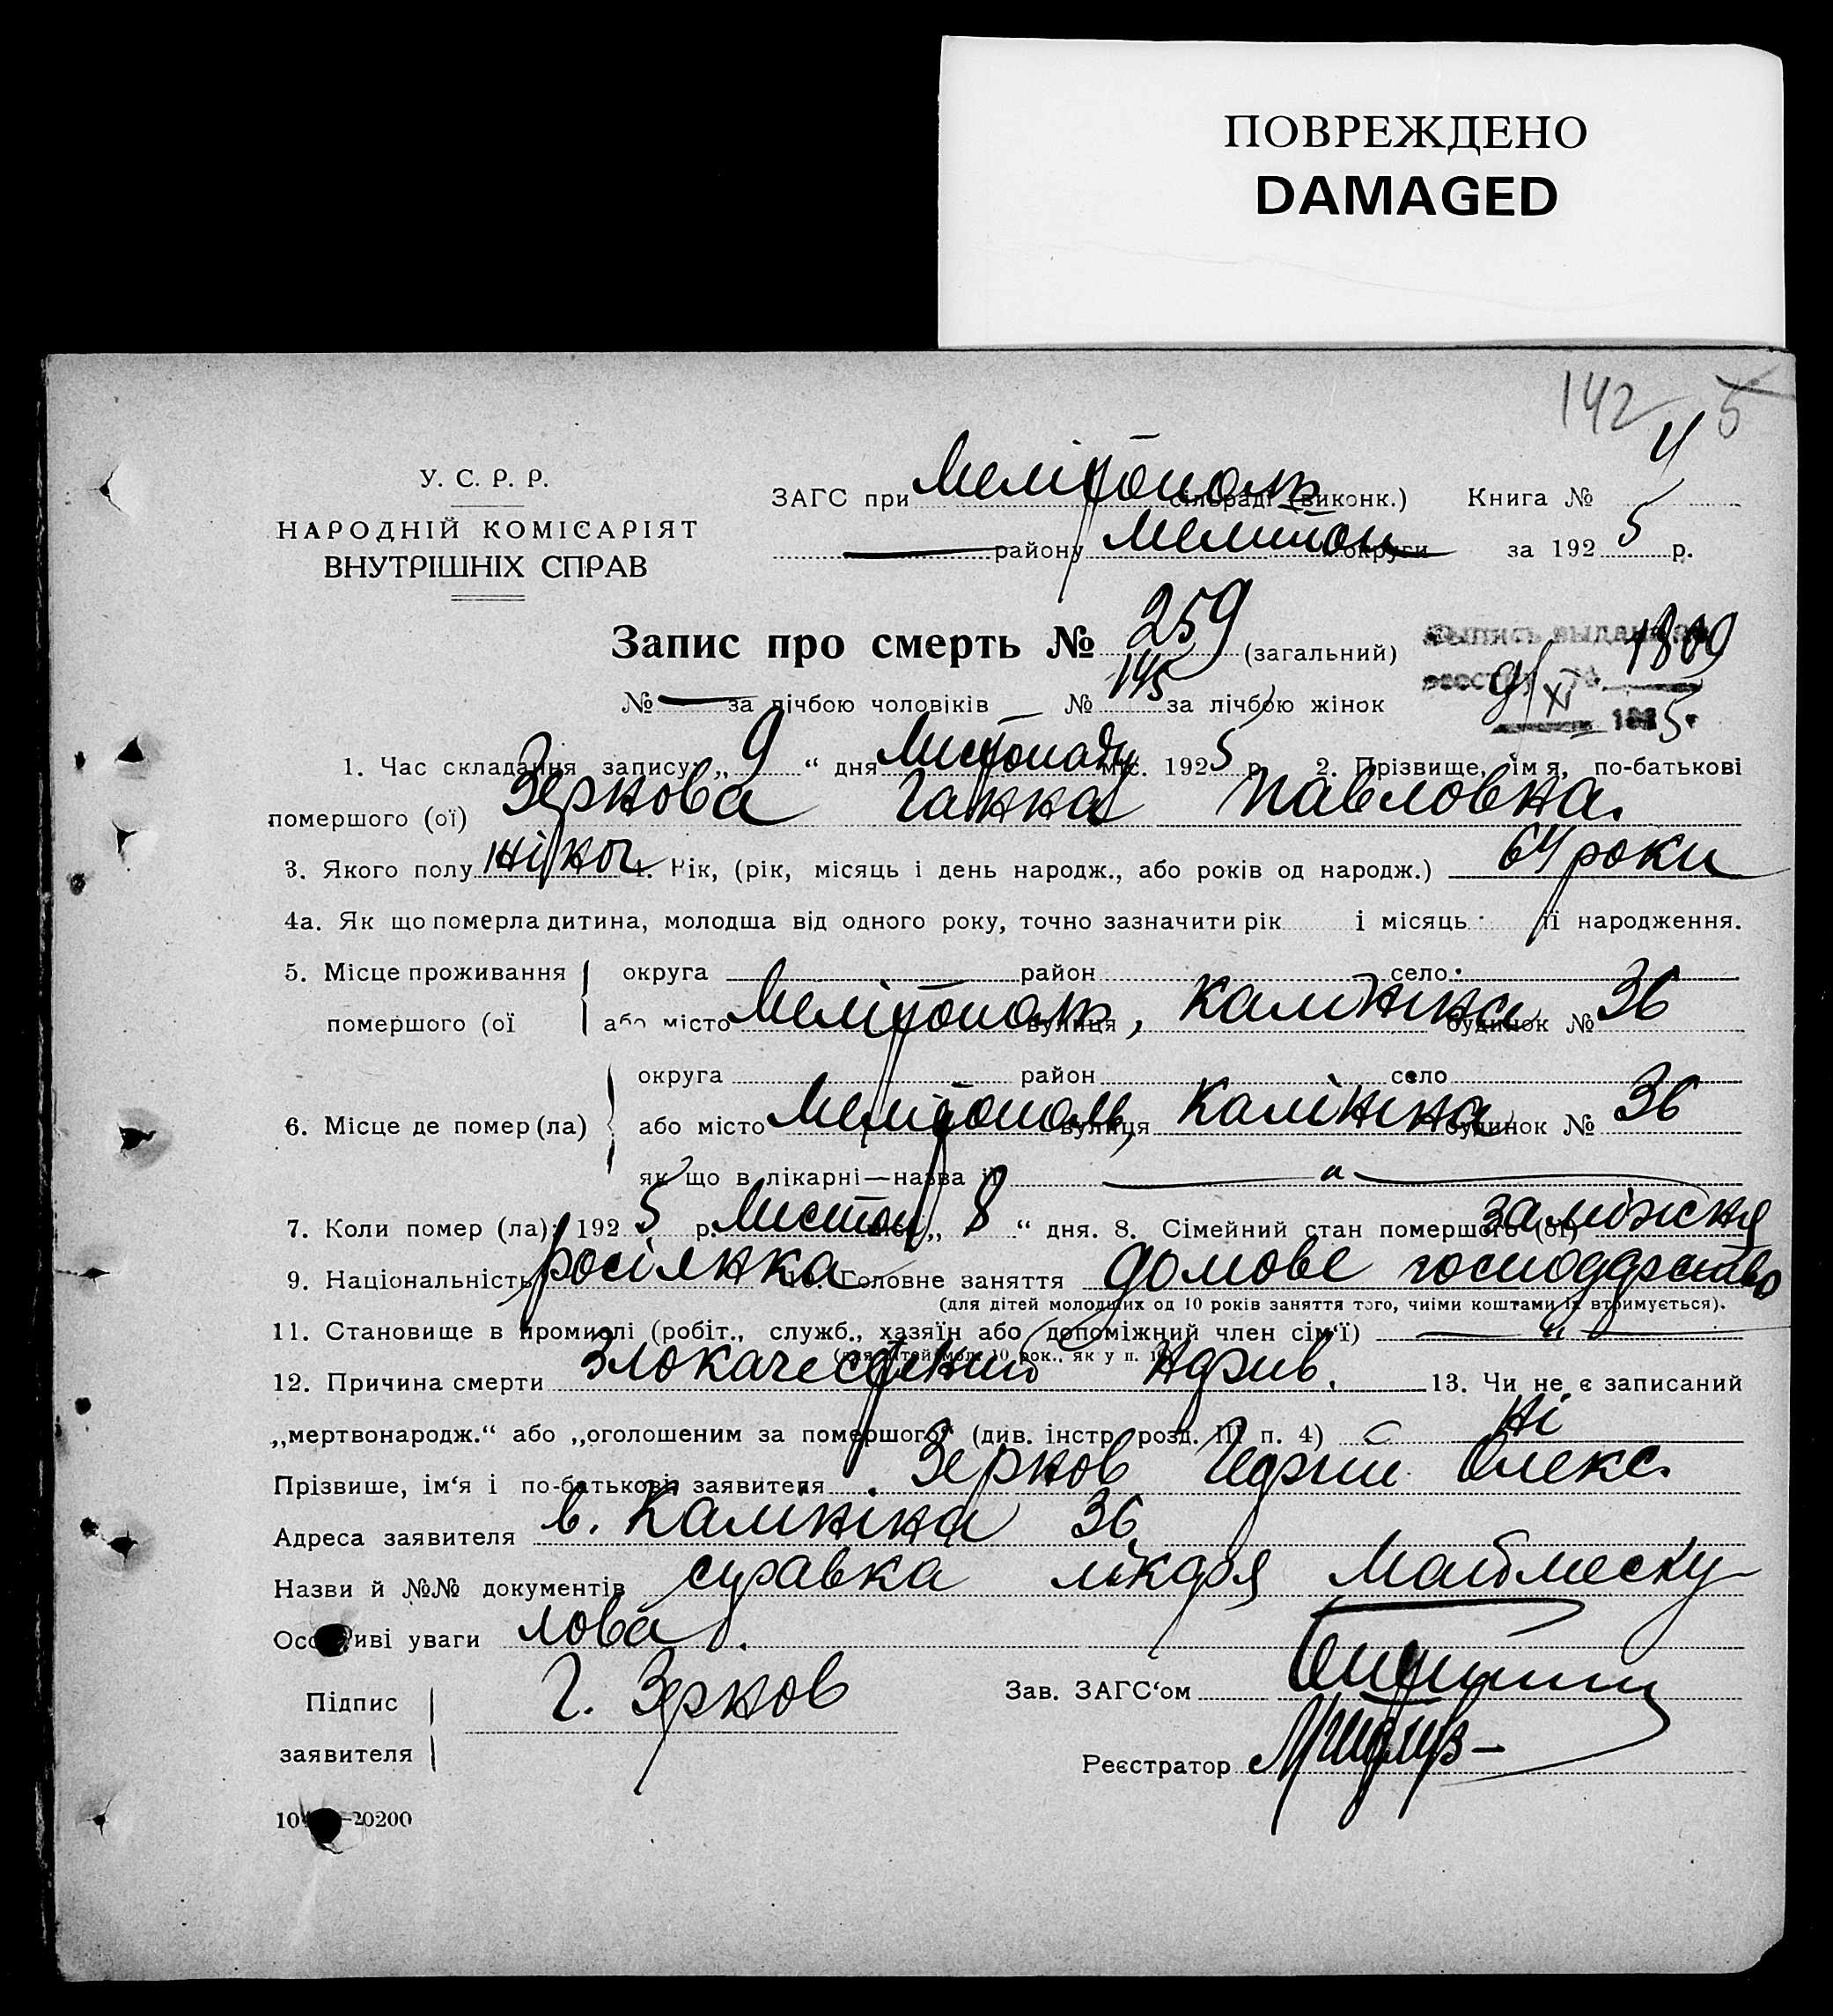 ПОВРЕЖДЕНО
DAMAGED
142 5
У. С. Р. Р.
НАРОДНІЙ КОМІСАРІЯТ
ВНУТРІШНІХ СПРАВ
ЗАГС при Мелітополь сільраді (виконк.) Книга № 4
— району Мелитоп округи за 192 5 р.
Запис про смерть № 259 (загальний)
Выпись выдана
9/XI 1925
№ — за лічбою чоловіків № 145 за лічбою жінок
1. Час складання запису: „ 9 “ дня Листопаду міс. 192 5 р. 2. Прізвище, ім‘я, по-батькові
помершого (ої) Зеркова Ганна Павловна.
3. Якого полу жіночі 4. Рік, (рік, місяць і день народж., або років од народж.) 64 роки
4а. Як що померла дитина, молодша від одного року, точно зазначити рік і місяць її народження.
5. Місце проживання округа район село
помершого (ої або місто Мелітополь, вулиця Калініна будинок № 36
округа район село
6. Місце де помер (ла) або місто Мелітополь, вулиця Калініна будинок № 36
як що в лікарні—назва її — „ —
7. Коли помер (ла): 192 5 р. Листоп „ 8 “ дня. 8. Сімейний стан помершого (ої) заміжня
9. Національність росіянка 10. Головне заняття домове господарство
(для дітей молодших од 10 років заняття того, чиїми коштами їх втримується).
11. Становище в промислі (робіт., служб., хазяїн або допоміжний член сім‘ї) — „ —
(для дітей мол. 10 рок., як у п. 10)
12. Причина смерти Злокачествений нарив. 13. Чи не є записаний
„мертвонародж.“ або „оголошеним за помершого“ (див. інстр. розд. III п. 4) Ні
Прізвише, ім‘я і по-батькові заявителя Зерков Олекс.
Адреса заявителя в. Калініна 36
Назви й №№ документів справка лікаря
Особливі уваги лова
Підпис
заявителя Г. Зерков
Зав. ЗАГС‘ом
Реєстратор
20200